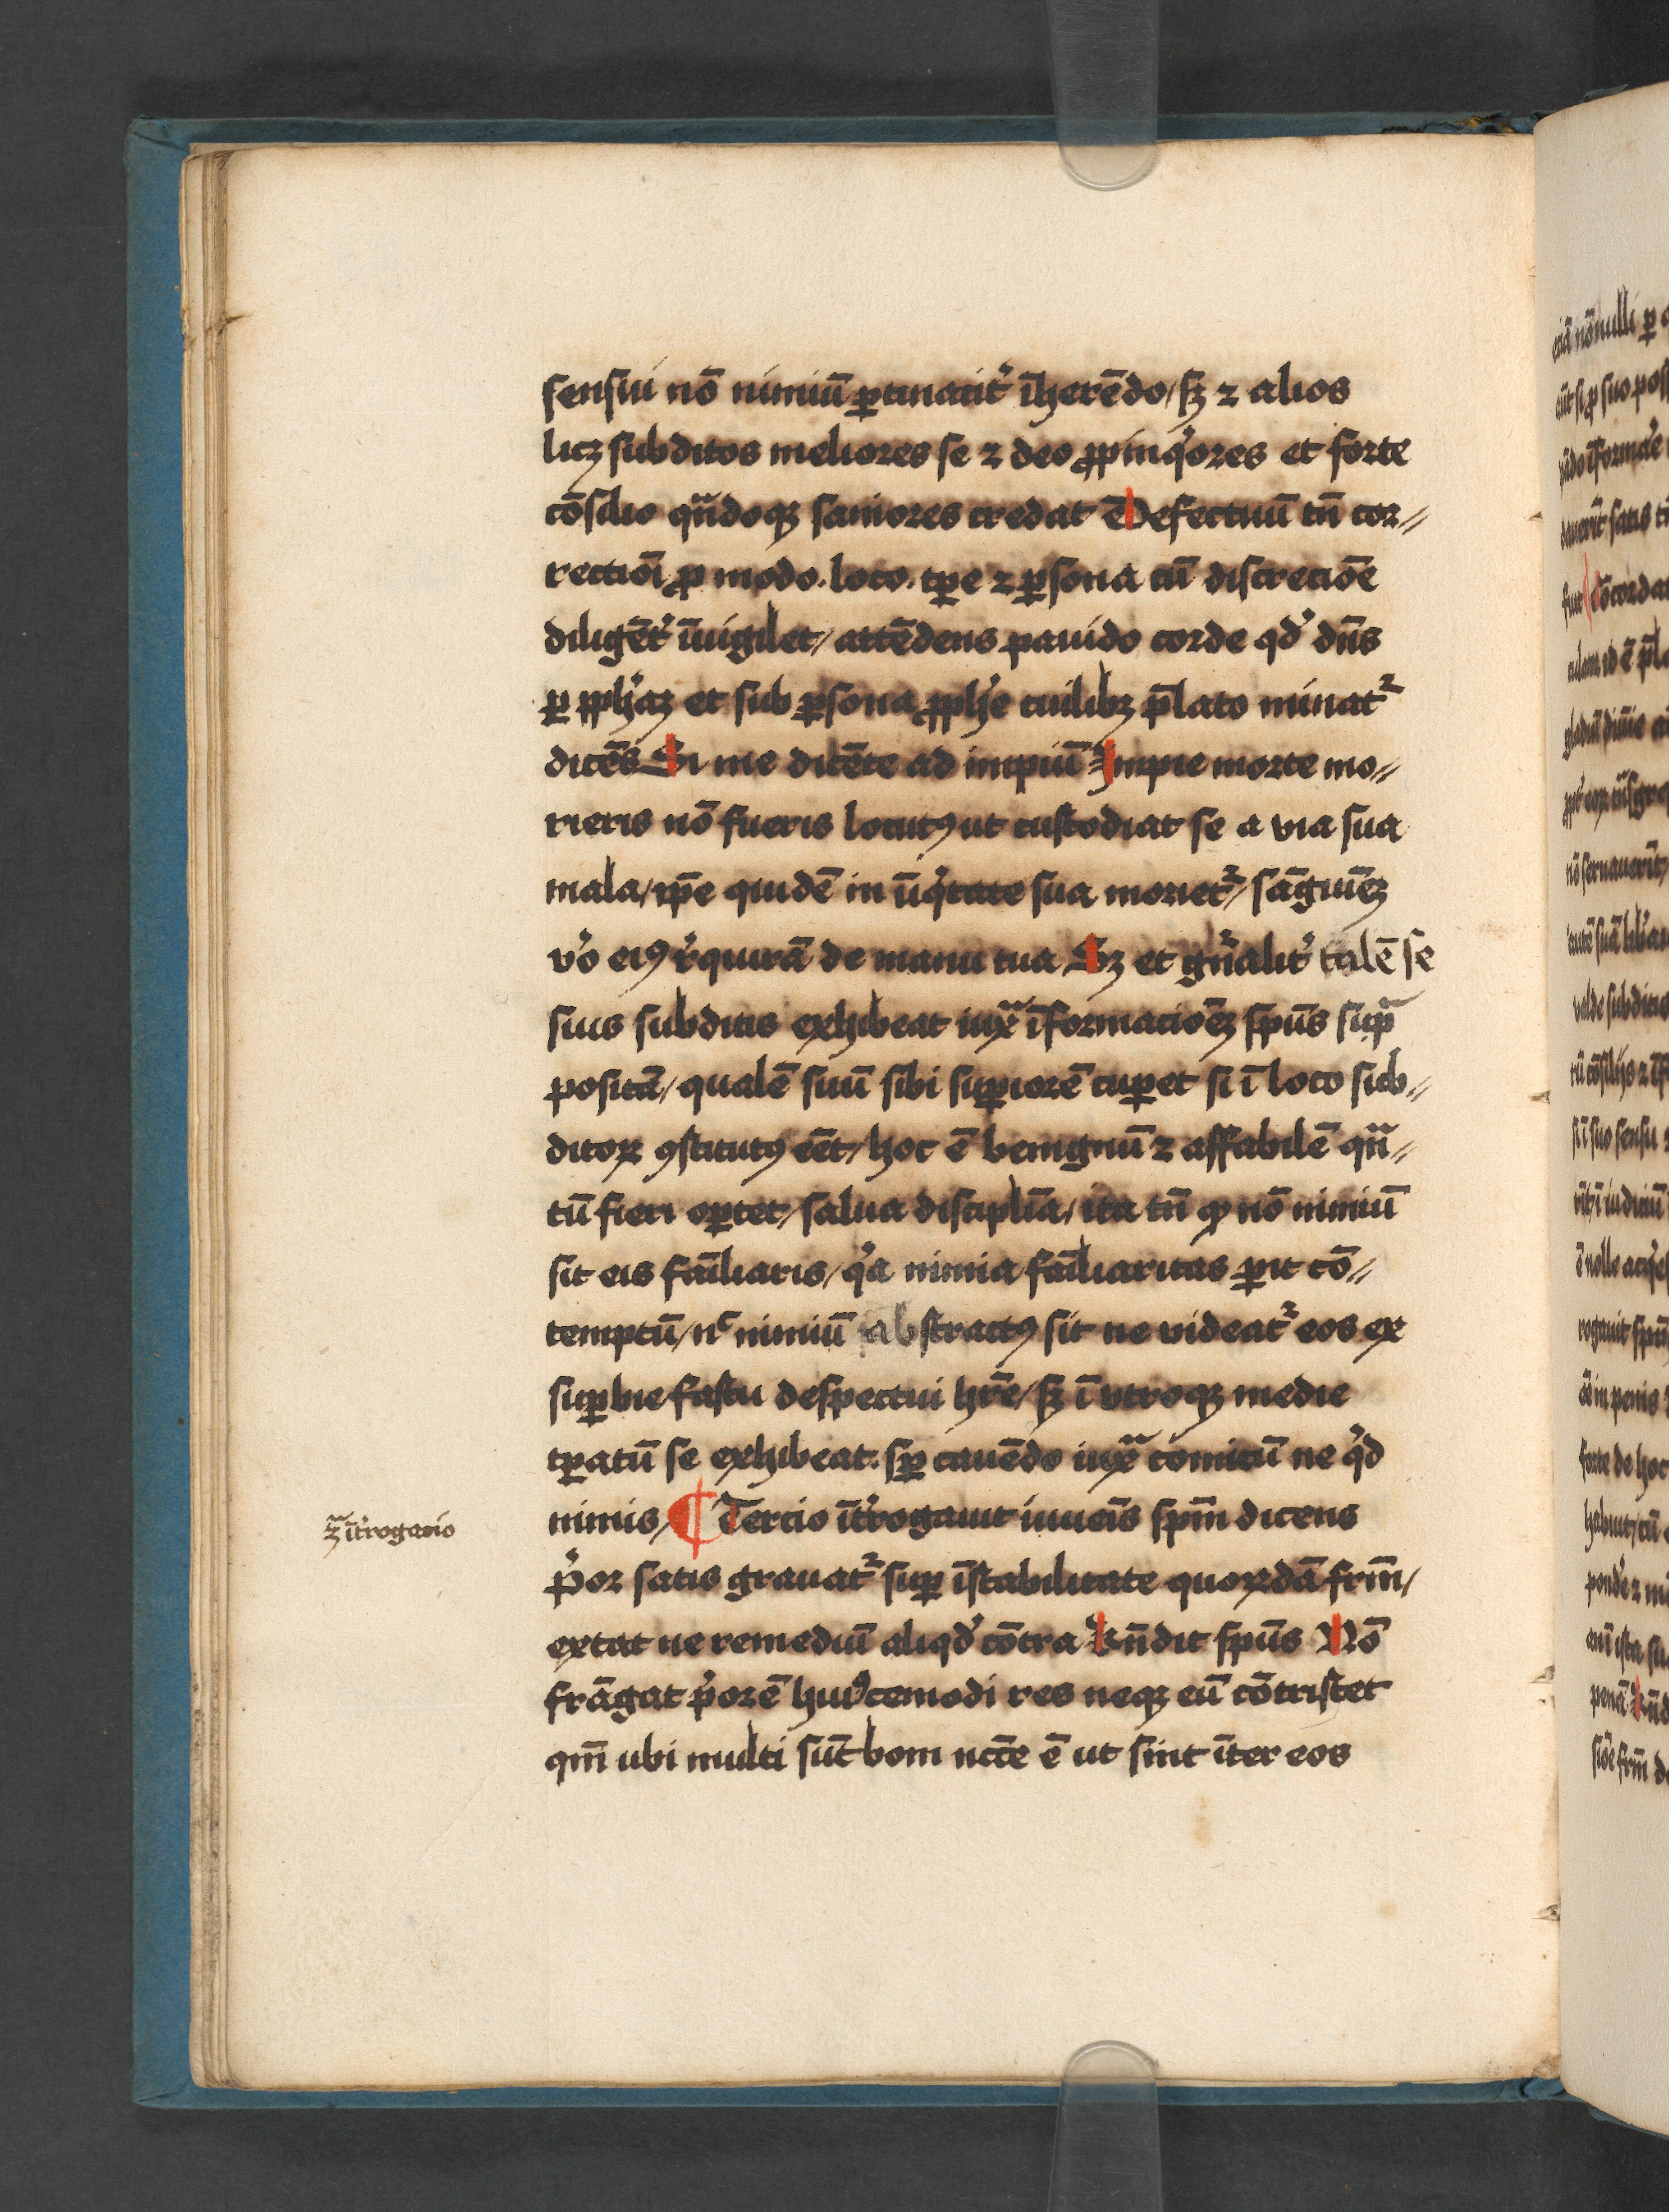 sensui nō nimiū ꝑtinacit̉ īherēdo / sꝫ ⁊ alios
licꝫ subditos meliores se ⁊ deo ꝓpinq̉ores et forte
cōsilio qn̄doqꝫ saniores credat Defectuū tn̄ cor⸗
rectiōi ꝓ modo . loco . tꝑe ⁊ ꝑsona cū discreciōe
diligēt̉ īuigilet / attēdens pauido corde qd̉ dn̄s
ꝑ ꝓph̉aꝫ et sub ꝑsona ꝓph̉e cuilibꝫ p̄lato minat᷑
dicēs Si me dicēte ad impiū Impie morte mo⸗
rieris nō fueris locutꝰ ut custodiat se a via sua
mala / ip̄e quidē in iniq̉tate sua moriet᷑ / sāguīeꝫ
v̉o eiꝰ r̉quirā de manu tua Sꝫ et gn̄alit̉ talē se
suis subditis exhibeat iux̄ īformacioēꝫ sp̄us sup̄
positā / qualē suū sibi suꝑiorē cuꝑet si ī loco sub⸗
ditoꝝ ꝯstitutꝰ eēt / hoc ē benignū ⁊ affabilē qn̄⸗
tū fieri oꝑtet / salua disciplīa / ita tn̄ ꝙ nō nimiū
sit eis fāiliaris / q̉a nimia fāiliaritas ꝑit cō⸗
temptū / nᶜ nimiū abstractꝰ sit ne videat᷑ eos ex
suꝑbie fastu despectui hr̄e / sꝫ ī vtroqꝫ medie
tꝑatū se exhibeat . sꝑ cauēdo iux̄ comicū ne q̉d
nimis / ¶ Tercio īt̉rogauit iuuēis sp̄m dicens
ꝫ̄ īt̉rogacio
p̉or satis grauat᷑ suꝑ īstabilitate quorūdā frm̄ /
extat ne remediū aliqd̉ cōtra Rn̄dit sp̄us Nō
frāgat p̉orē huiꝰcemodi res neqꝫ eū cōtristet
qm̄ ubi multi sūt boni ncc̄e ē ut sint īter eos